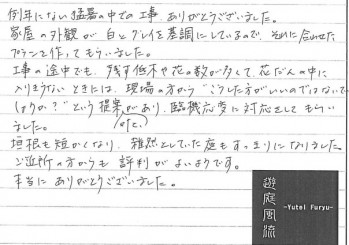 例年にない猛暑の中での工事、ありがとうございました。
家屋の外観が白とグレイを基調にしているので、それに合わせた
プランを作ってもらいました。
工事の途中でも、残す低木や花の数が多くて、花だんの中に
入りきらないときには、現場の方から"こうした方がいいのではないで
しょうか?"という提案があり、臨機応変に対応をしてもらい
etc.
ました。
垣根も短かくなり、雑然としていた庭もすっきりになりました。
ご近所の方からも評判がよいようです。
本当にありがとうございました。
遊庭風流
-Yutei Furyu-